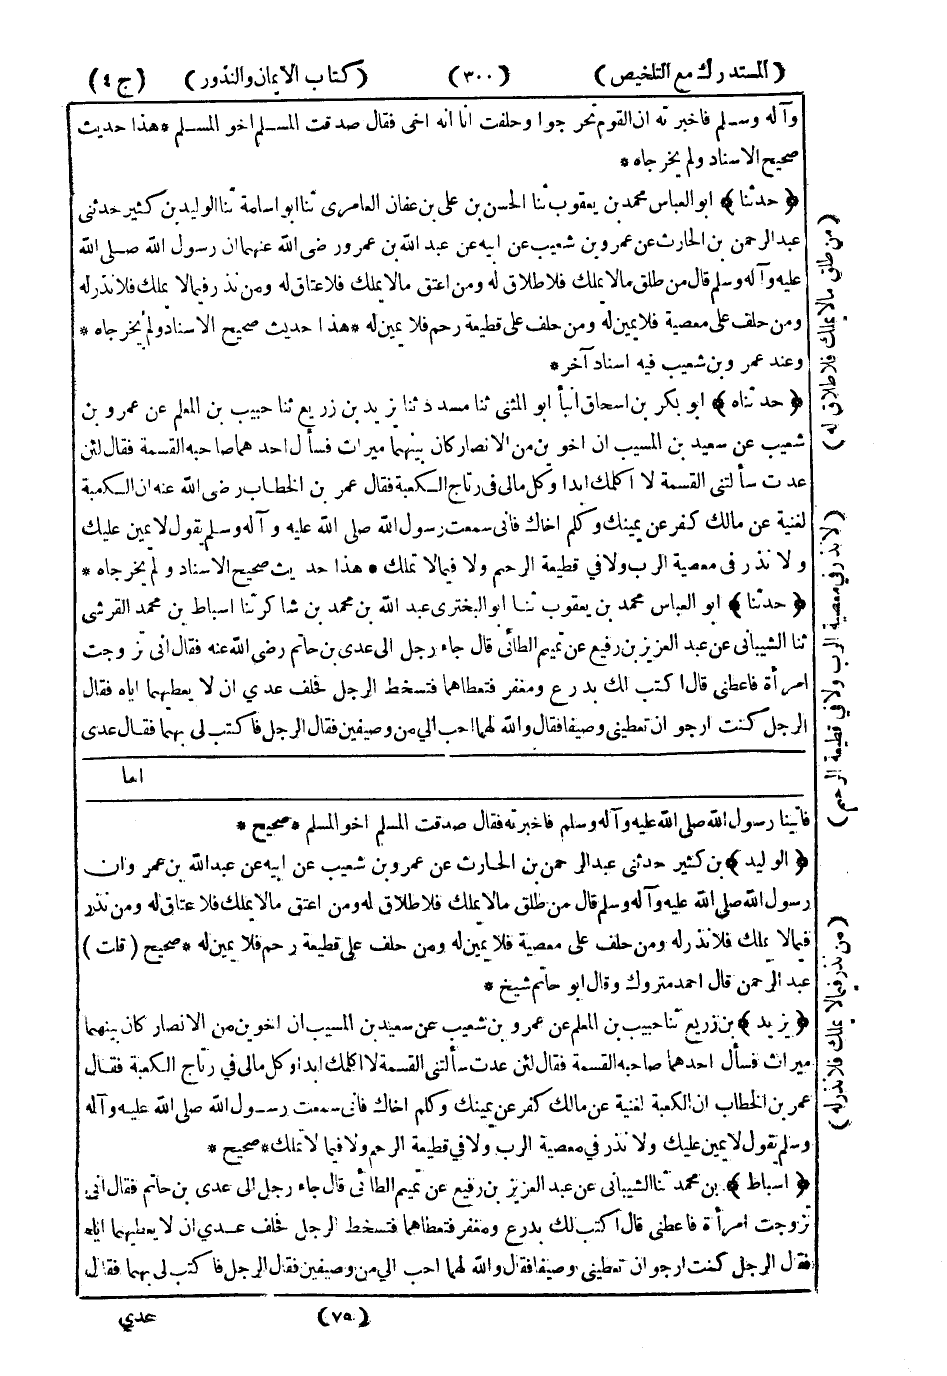 (المستدرك مع التلخيص) (٣٠٠) (كتاب الايمان والنذور) (ج ٤)
وآله وسلم فاخبرته ان القوم تحرجوا وحلفت انا انه اخي فقال صدقت المسلم اخو المسلم * هذا حديث
صحيح الاسناد ولم يخرجاه *
﴿ حدثنا ﴾ ابو العباس محمد بن يعقوب ثنا الحسن بن علي بن عفان العامرى ثنا ابو اسامة ثنا الوليد بن كثير حدثنى
عبد الرحمن بن الحارث عن عمرو بن شعيب عن ابيه عن عبد الله بن عمرو رضى الله عنهما ان رسول الله صلى الله
عليه وآله وسلم قال من طلق مالا يملك فلا طلاق له ومن اعتق مالا يملك فلا عتاق له ومن نذر فيما لا يملك فلا نذر له
ومن حلف على معصية فلا يمين له ومن حلف على قطيعة رحم فلا يمين له * هذا حديث صحيح الاسناد ولم يخرجاه *
وعند عمرو بن شعيب فيه اسناد آخر *
﴿ حدثناه ﴾ ابو بكر بن اسحاق انبأ ابو المثنى ثنا مسدد ثنا يزيد بن زريع ثنا حبيب بن المعلم عن عمرو بن
شعيب عن سعيد بن المسيب ان اخوين من الانصار كان بينهما ميراث فسأل احدهما صاحبه القسمة فقال لئن
عدت سألتنى القسمة لا اكلمك ابدا وكل مالى فى رتاج الكعبة فقال عمر بن الخطاب رضى الله عنه ان الكعبة
لغنية عن مالك كفر عن يمينك وكلم اخاك فانى سمعت رسول الله صلى الله عليه وآله وسلم يقول لا يمين عليك
ولا نذر فى معصية الرب ولا في قطيعة الرحم ولا فيما لا تملك * هذا حديث صحيح الاسناد ولم يخرجاه *
﴿ حدثنا ﴾ ابو العباس محمد بن يعقوب ثنا ابو البخترى عبد الله بن محمد بن شاكر ثنا اسباط بن محمد القرشى
ثنا الشيبانى عن عبد العزيز بن رفيع عن تميم الطائى قال جاء رجل الى عدى بن حاتم رضي الله عنه فقال انى تزوجت
امرأة فاعطنى قال اكتب لك بدرع ومغفر فتعطاهما فتسخط الرجل فحلف عدي ان لا يعطيهما اياه فقال
الرجل كنت ارجو ان تعطيني وصيفا فقال والله لهما احب الي من وصيفين فقال الرجل فاكتب لى بهما فقال عدى
اما
فاتينا رسول الله صلى الله عليه وآله وسلم فاخبرته فقال صدقت المسلم اخو المسلم * صحيح *
﴿ الوليد ﴾ بن كثير حدثنى عبد الرحمن بن الحارث عن عمرو بن شعيب عن ابيه عن عبد الله بن عمرو ان
رسول الله صلى الله عليه وآله وسلم قال من طلق مالا يملك فلا طلاق له ومن اعتق مالا يملك فلا عتاق له ومن نذر
فيما لا يملك فلا نذر له ومن حلف على معصية فلا يمين له ومن حلف على قطيعة رحم فلا يمين له * صحيح (قلت)
عبد الرحمن قال احمد متروك وقال ابو حاتم شيخ *
﴿ يزيد ﴾ بن زريع ثنا حبيب بن المعلم عن عمرو بن شعيب عن سعيد بن المسيب ان اخوين من الانصار كان بينهما
ميراث فسأل احدهما صاحبه القسمة فقال لئن عدت سألتنى القسمة لا اكلمك ابدا وكل مالي في رتاج الكعبة فقال
عمر بن الخطاب ان الكعبة لغنية عن مالك كفر عن يمينك وكلم اخاك فانى سمعت رسول الله صلى الله عليه وآله
وسلم يقول لا يمين عليك ولا نذر في معصية الرب ولا في قطيعة الرحم ولا فيما لا تملك * صحيح *
﴿ اسباط ﴾ بن محمد ثنا الشيبانى عن عبد العزيز بن رفيع عن تميم الطائي قال جاء رجل الى عدى بن حاتم فقال انى
تزوجت امرأة فاعطنى قال اكتب لك بدرع ومغفر فتعطاهما فتسخط الرجل فحلف عدي ان لا يعطيهما اياه
فقال الرجل كنت ارجو ان تعطينى وصيفا فقال والله لهما احب الي من وصيفين فقال الرجل فاكتب لى بهما فقال
(٧٥) عدي
(من طلق مالا يملك فلا طلاق له)
(لا نذر في معصية الرب ولا في قطيعة الرحم)
(من نذر فيما لا يملك فلا نذر له)